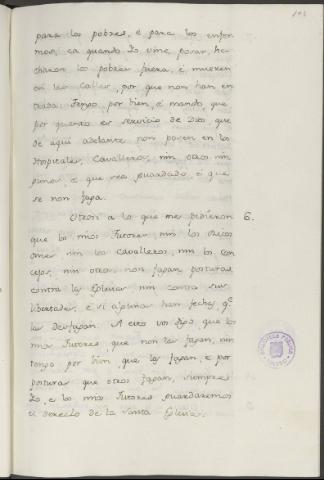 para los pobres, é para los enfer
mos, ca quando Yo vine posar, he
charon los pobres fuera, é mueren
en las Calles, por que non han en
trada: Tengo por bien, é mando, que
por quanto es servicio de Dios que
de aqui adelante non posen en los
Hospitales, Cavalleros, nin otros nin
gunos, é que sea guardado é que
se non faga.
Otrosi a lo que me pidieron 6.
que los mios Tutores nin los Ricos
omes nin los Cavalleros, nin los con
cejos, nin otros, non fagan posturas
contra las Eglesias nin contra sus
libertades, é si algunas han fechas qe
las desfagan. A esto vos digo, que los
mios Tutores, que non las fagan, nin
tengo por bien que las fagan, é por
posturas que otros fagan, siempre
Yo, é los mios Tutores guardaremos
el derecho de la Santa Eglesia.